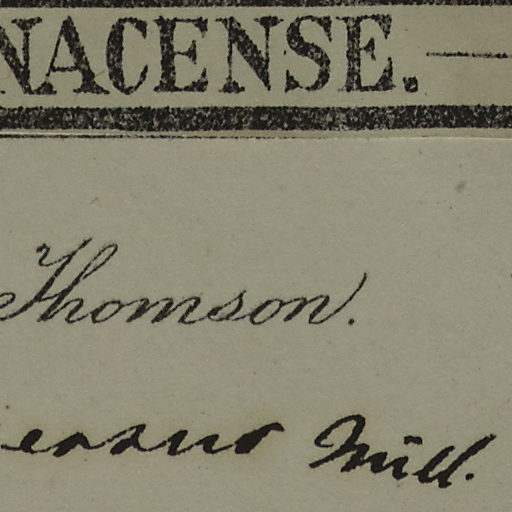 NACENSE. —
Thomson.
Mill.